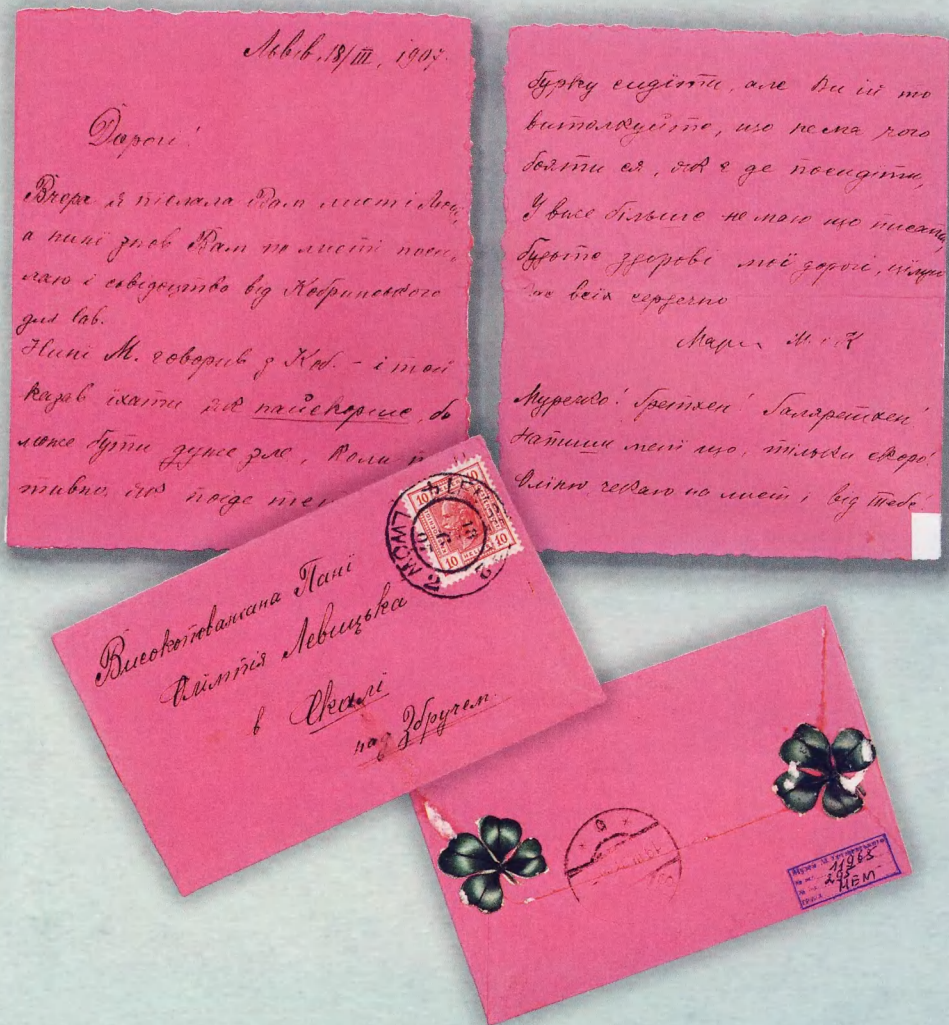 Львів 18/III, 1907.
Дорогі!
Вчора я післала Вам лист і
а нині знов Вам по листі поси-
лаю і свідоцтво від Кобринського
для
Нині М. говорив з Коб. – і той
казав їхати як найскорше, бо
може бути дуже зле, коли
як поїде
сидіти, але Ви їй то
витолкуйте, що нема чого
бояти ся, як є де посидіти,
У вже більше не маю що писати,
будьте здорові мої дорогі, цілую
Вас всіх сердечно
Мурочко! Гретхен! Галяретхен!
Напиши мені що, тільки скоро!
Олінко, чекаю на лист і від тебе!
10
10
10
10
LWÓW 2
Високоповажана Пані
Олімпія Левицька
в Скалі
над Збручем.
Музей М. Грушевського
11965
295
МЕМ